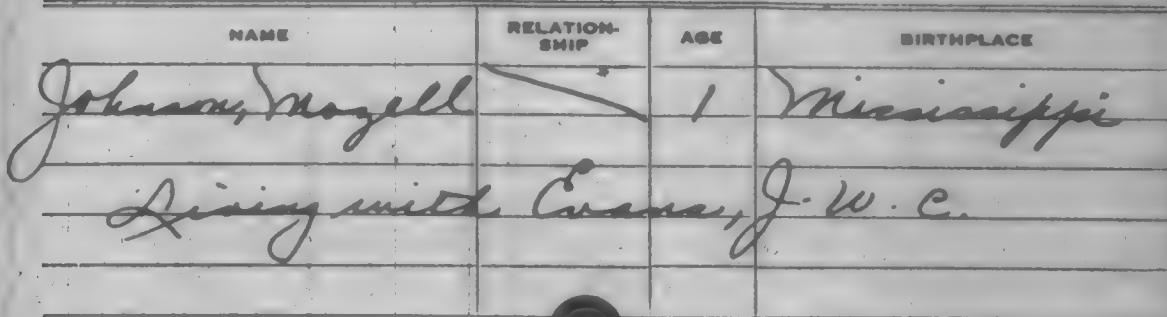 NAME RELATION-SHIP AGE BIRTHPLACE
Johnson, Mozell 1 Mississippi
Living with Evans, J. W. C.